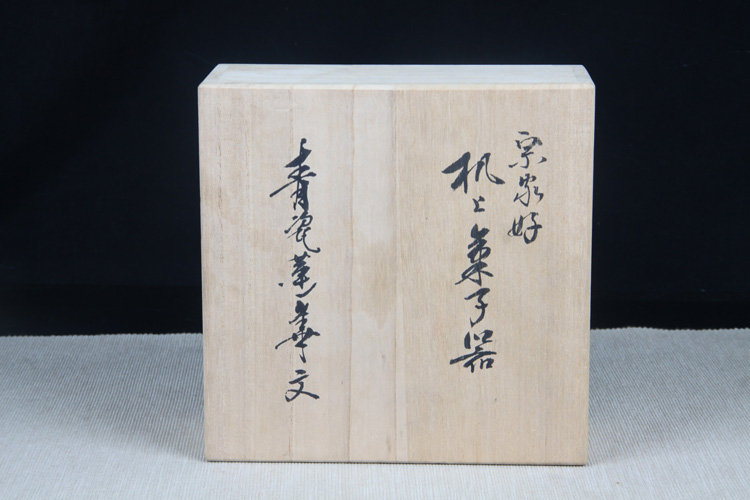 宗家好
机上菓子器
青瓷蓮華文